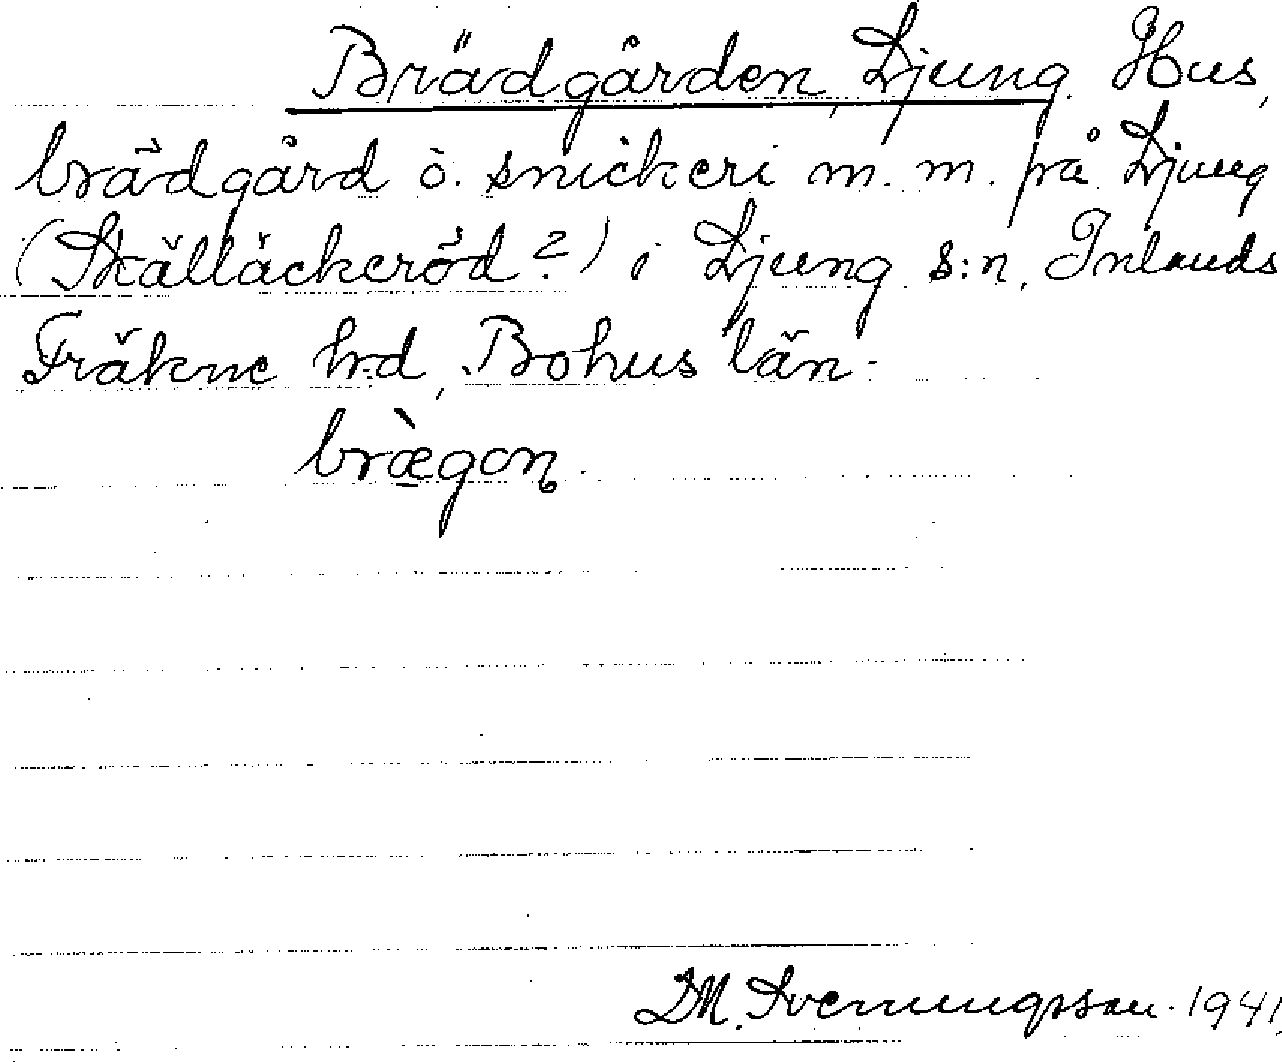 Brädgården, Ljung. Hus,
brädgård o. snickeri m. m. på Ljung
(Skälläckeröd?) i Ljung s:n, Inlands
Fräkne hd, Bohus län.
bræ̀gon.
Svenungsson. 1941.